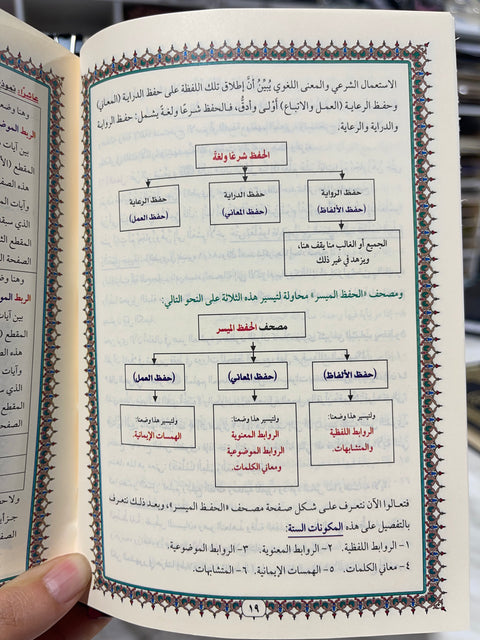 الاستعمال الشرعي والمعنى اللغوي يُبَيِّنُ أنَّ إطلاق تلك اللفظة على حفظ الدراية (المعاني)
وحفظ الرعاية (العمل والاتباع) أَوْلَى وأدقُّ، فالحفظ شرعًا ولغةً يشمل: حفظ الرواية
والدراية والرعاية.
الحفظ شرعًا ولغةً
حفظ الرواية
(حفظ الألفاظ)
حفظ الدراية
(حفظ المعاني)
حفظ الرعاية
(حفظ العمل)
الجميع أو الغالب منا يقف هنا،
ويزهد في غير ذلك
ومصحف «الحفظ الميسر» محاولة لتيسير هذه الثلاثة على النحو التالي:
مصحف الحفظ الميسر
(حفظ الألفاظ)
(حفظ المعاني)
(حفظ العمل)
ولتيسير هذا وضعنا:
الروابط اللفظية
والمتشابهات.
ولتيسير هذا وضعنا:
الروابط المعنوية
الروابط الموضوعية
ومعاني الكلمات.
ولتيسير هذا وضعنا:
الهمسات الإيمانية.
فتعالوا الآن نتعرف على شكل صفحة مصحف «الحفظ الميسر»، وبعد ذلك نتعرف
بالتفصيل على هذه المكونات الستة:
١- الروابط اللفظية. ٢- الروابط المعنوية. ٣- الروابط الموضوعية.
٤- معاني الكلمات. ٥- الهمسات الإيمانية. ٦- المتشابهات.
١٩
عاشرًا:
وهنا وضع
الربط الموض
بين آيات
المقطع (الأ
هذه الصف
وآيات الم
الذي سبقه
المقطع الث
الصفحة ال
وهنا وضع
الربط المو
بين آيات
المقطع
هذه الص
وآيات
الذي س
المقطع
الصفح
ولاحـ
جزأيـ
الصف